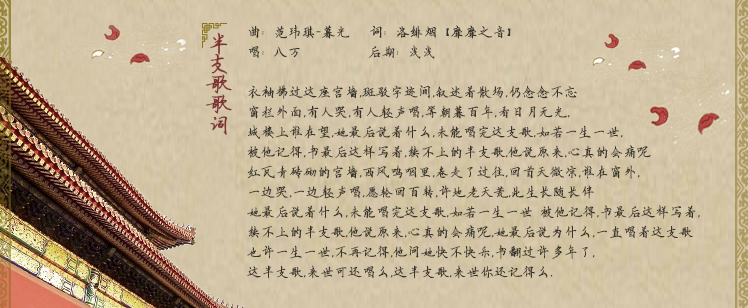 半支歌歌词
曲: 范玮琪-暮光 词: 洛绯烟【靡靡之音】
唱: 八万 后期: 浅浅
衣袖拂过这座宫墙,斑驳字迹间,叙述着散场,仍念念不忘
窗栏外面,有人哭,有人轻声唱,等朝暮百年,看日月无光,
城楼上谁在望,她最后说着什么,未能唱完这支歌,如若一生一世,
被他记得,书最后这样写着,续不上的半支歌,他说原来,心真的会痛呢
红瓦青砖砌的宫墙,西风呜咽里,卷走了过往,回首天微凉,谁在窗外,
一边哭,一边轻声唱,愿轮回百转,许地老天荒,此生长随长伴
她最后说着什么,未能唱完这支歌,如若一生一世 被他记得,书最后这样写着,
续不上的半支歌,他说原来,心真的会痛呢,她最后为什么,一直唱着这支歌
也许一生一世,不再记得,他问她快不快乐,书翻过许多年了,
这半支歌,来世可还唱么,这半支歌,来世你还记得么,